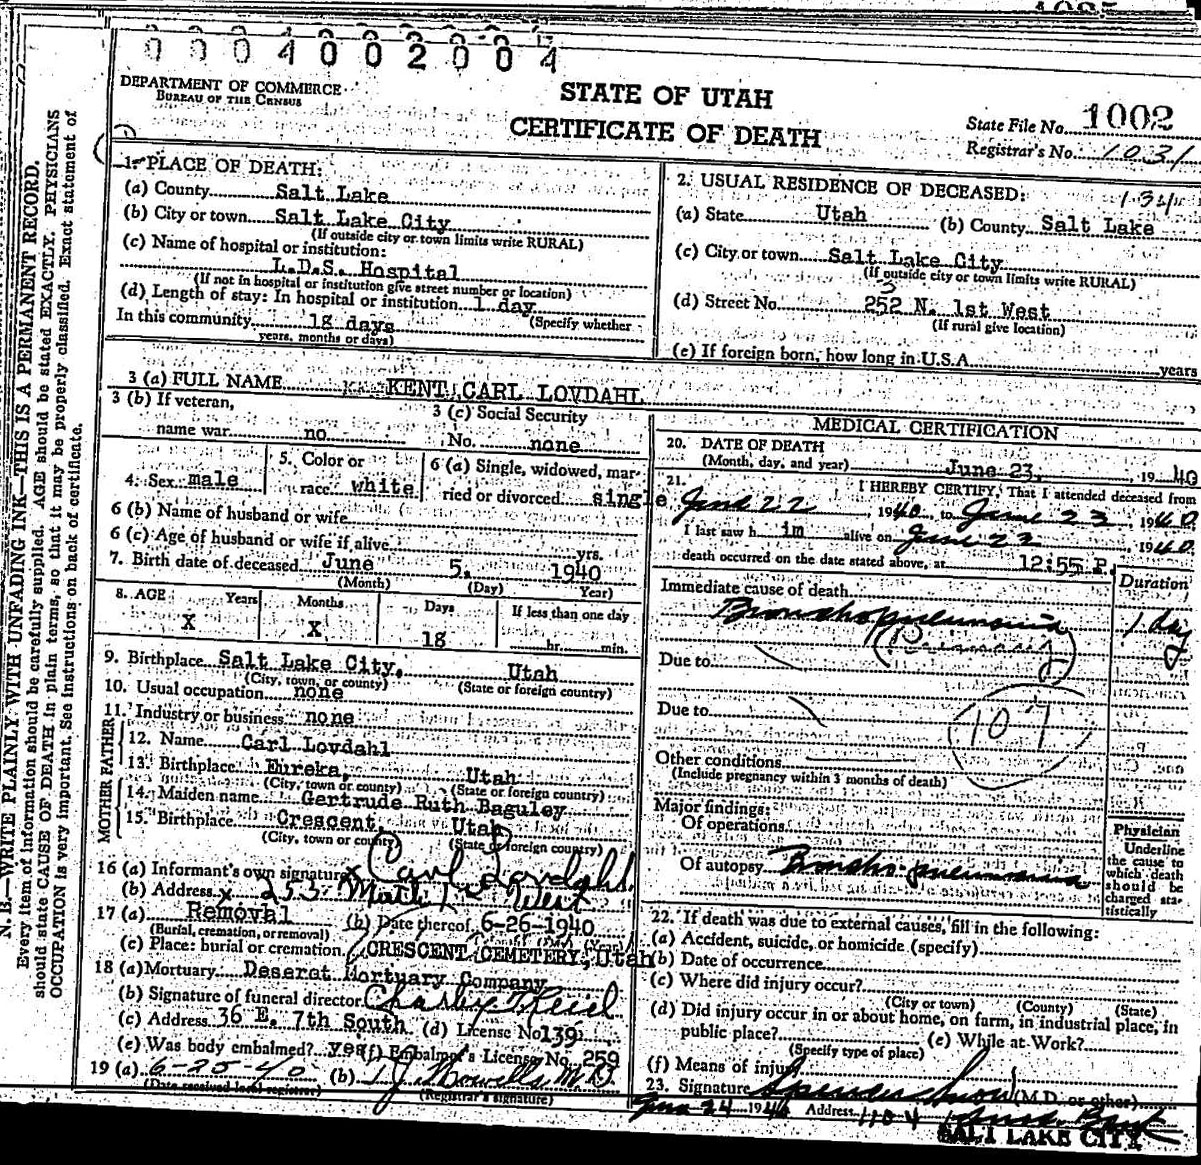 0004002004
DEPARTMENT OF COMMERCE
BUREAU OF THE CENSUS
STATE OF UTAH
CERTIFICATE OF DEATH
State File No. 1002
Registrar's No. 1031
1. PLACE OF DEATH:
(a) County Salt Lake
(b) City or town Salt Lake City
(If outside city or town limits write RURAL)
(c) Name of hospital or institution:
L.D.S. Hospital
(If not in hospital or institution give street number or location)
(d) Length of stay: In hospital or institution 1 day
(Specify whether
In this community 18 days
years, months or days)
2. USUAL RESIDENCE OF DECEASED:
(a) State Utah (b) County Salt Lake
(c) City or town Salt Lake City
(If outside city or town limits write RURAL)
(d) Street No. 252 N. 1st West
(If rural give location)
(e) If foreign born, how long in U.S.A. years
3 (a) FULL NAME KENT CARL LOVDAHL
3 (b) If veteran,
name war no
3 (c) Social Security
No. none
4. Sex male
5. Color or
race white
6 (a) Single, widowed, mar-
ried or divorced single
6 (b) Name of husband or wife
6 (c) Age of husband or wife if alive yrs.
7. Birth date of deceased June 5, 1940
(Month) (Day) Year)
8. AGE Years Months Days If less than one day
X X 18 hr. min.
9. Birthplace Salt Lake City, Utah
(City, town, or county) (State or foreign country)
10. Usual occupation none
11. Industry or business none
FATHER
12. Name Carl Lovdahl
13. Birthplace Eureka, Utah
(City, town or county) (State or foreign country)
MOTHER
14. Maiden name Gertrude Ruth Baguley
15. Birthplace Crescent, Utah
(City, town or county) (State or foreign country)
16 (a) Informant's own signature x Carl Lovdahl
(b) Address x 253 North 1 West
17 (a) Removal (b) Date thereof 6-26-1940
(Burial, cremation, or removal)
(c) Place: burial or cremation CRESCENT CEMETERY, Utah
18 (a) Mortuary Deseret Mortuary Company
(b) Signature of funeral director
(c) Address 36 E. 7th South (d) License No 139
(e) Was body embalmed? yes (f) Embalmer's License No. 259
19 (a) 6-25-40 (b) T.J. Howells M.D.
(Date received local registrar) (Registrar's signature)
MEDICAL CERTIFICATION
20. DATE OF DEATH
(Month, day, and year) June 23, 1940
21. I HEREBY CERTIFY, That I attended deceased from
June 22, 1940, to June 23, 1940
I last saw h im alive on June 23, 1940.
death occurred on the date stated above, at 12:55 P.
Duration
Immediate cause of death
Bronchopneumonia 1 day
(Primary)
Due to
Due to
107
Other conditions
(Include pregnancy within 3 months of death)
Major findings:
Of operations
Of autopsy Broncho-pneumonia
Physician
Underline
the cause to
which death
should be
charged sta-
tistically
22. If death was due to external causes, fill in the following:
(a) Accident, suicide, or homicide (specify)
(b) Date of occurrence
(c) Where did injury occur?
(City or town) (County) (State)
(d) Did injury occur in or about home, on farm, in industrial place, in
public place? (e) While at Work?
(Specify type of place)
(f) Means of injury
23. Signature Spencer Snow (M.D. or other)
June 24 1940 Address 1104
SALT LAKE CITY
N. B.—WRITE PLAINLY WITH UNFADING INK—THIS IS A PERMANENT RECORD.
Every item of information should be carefully supplied. AGE should be stated EXACTLY. PHYSICIANS
should state CAUSE OF DEATH in plain terms, so that it may be properly classified. Exact statement of
OCCUPATION is very important. See instructions on back of certificate.